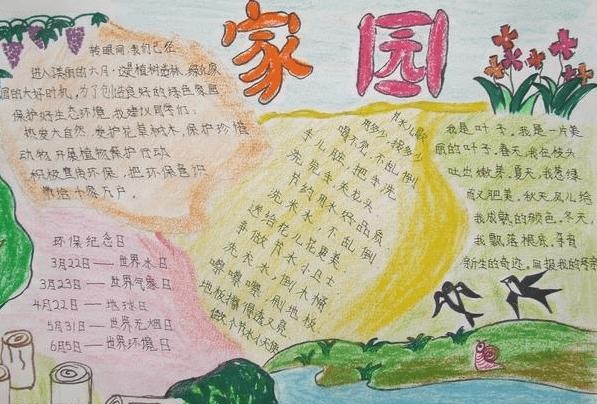 家园
转眼间,我们已经
进入美丽的六月,这是植树造林、绿化家
园的大好时机,为了创造良好的绿色家园
保护好生态环境,我建议同学们:
热爱大自然,爱护花草树木,保护珍惜
动物,开展植物保护行动
积极宣传环保,把环保意识
带给千家万户。
环保纪念日
3月22日——世界水日
3月23日——世界气象日
4月22日——地球日
5月31日——世界无烟日
6月5日——世界环境日
节水儿歌
用多少,接多少
喝不完,不乱倒
手儿脏,把手洗
洗完手,关龙头
节约用水好品质
洗米水,不乱倒
送给花儿花更美
争做节水小卫士
洗衣水,倒大桶
唰唰唰,刷地板
地板擦得透又亮
我是叶子,我是一片美
丽的叶子。春天,我在枝头
吐出嫩芽,夏天,我葱绿
而又肥美,秋天风儿给
我成熟的颜色,冬天,
我飘落根底,孕育
新生的奇迹,回报我的